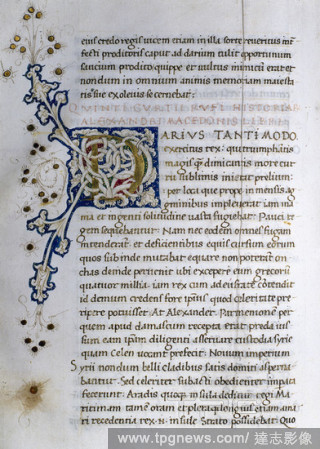 eius credo regis vicem etiam in illa sorte reveritus
fecti proditoris caput ad darium tulit opportunum
solacium prodito quippe et ultus inimicū erat et
nondum in omnium animis memoriam maiesta
tis sue exolevisse cernebat:
QUINTI CURTII RUFI HISTORIAE
ALEXANDRI MACEDONIS LIBER
DARIUS TANTI MODO
exercitus rex: qui triumphantis
magis q̃ dimicantis more cur
ru sublimis inierat prelium:
per loca que prope immensis ag
minibus impleverat iam ina
nia et ingenti solitudine vasta fugiebat. Pauci re
gem sequebantur. Nam nec eodem omnes fugam
intenderāt: et deficientibus equis cursum eorum
quos subinde mutabat equare non poterāt:
chas deinde pervenit ubi excepere eum grecorū
quatuor millia: iam rex
id demum credens fore ipsius quod celeritate pre
ripere potuisset. At Alexander. Parmenionē per
quem apud damascum recepta erat preda ius
sum eam diligenti asservare custodia syrie
quam celen vocāt prefecit. Novum imperium
Syrii nondum belli cladibus satis domiti asperna
bantur. Sed celeriter subacti obedienter imperata
fecerunt. Aradus quoq̃ insula deditur regi Ma
ritimam tamē oram et pleraq̃ longius etiam a ma
ri recedentia rex insule Strato possidebat. Quo
www.tpgnews.com / 達志影像